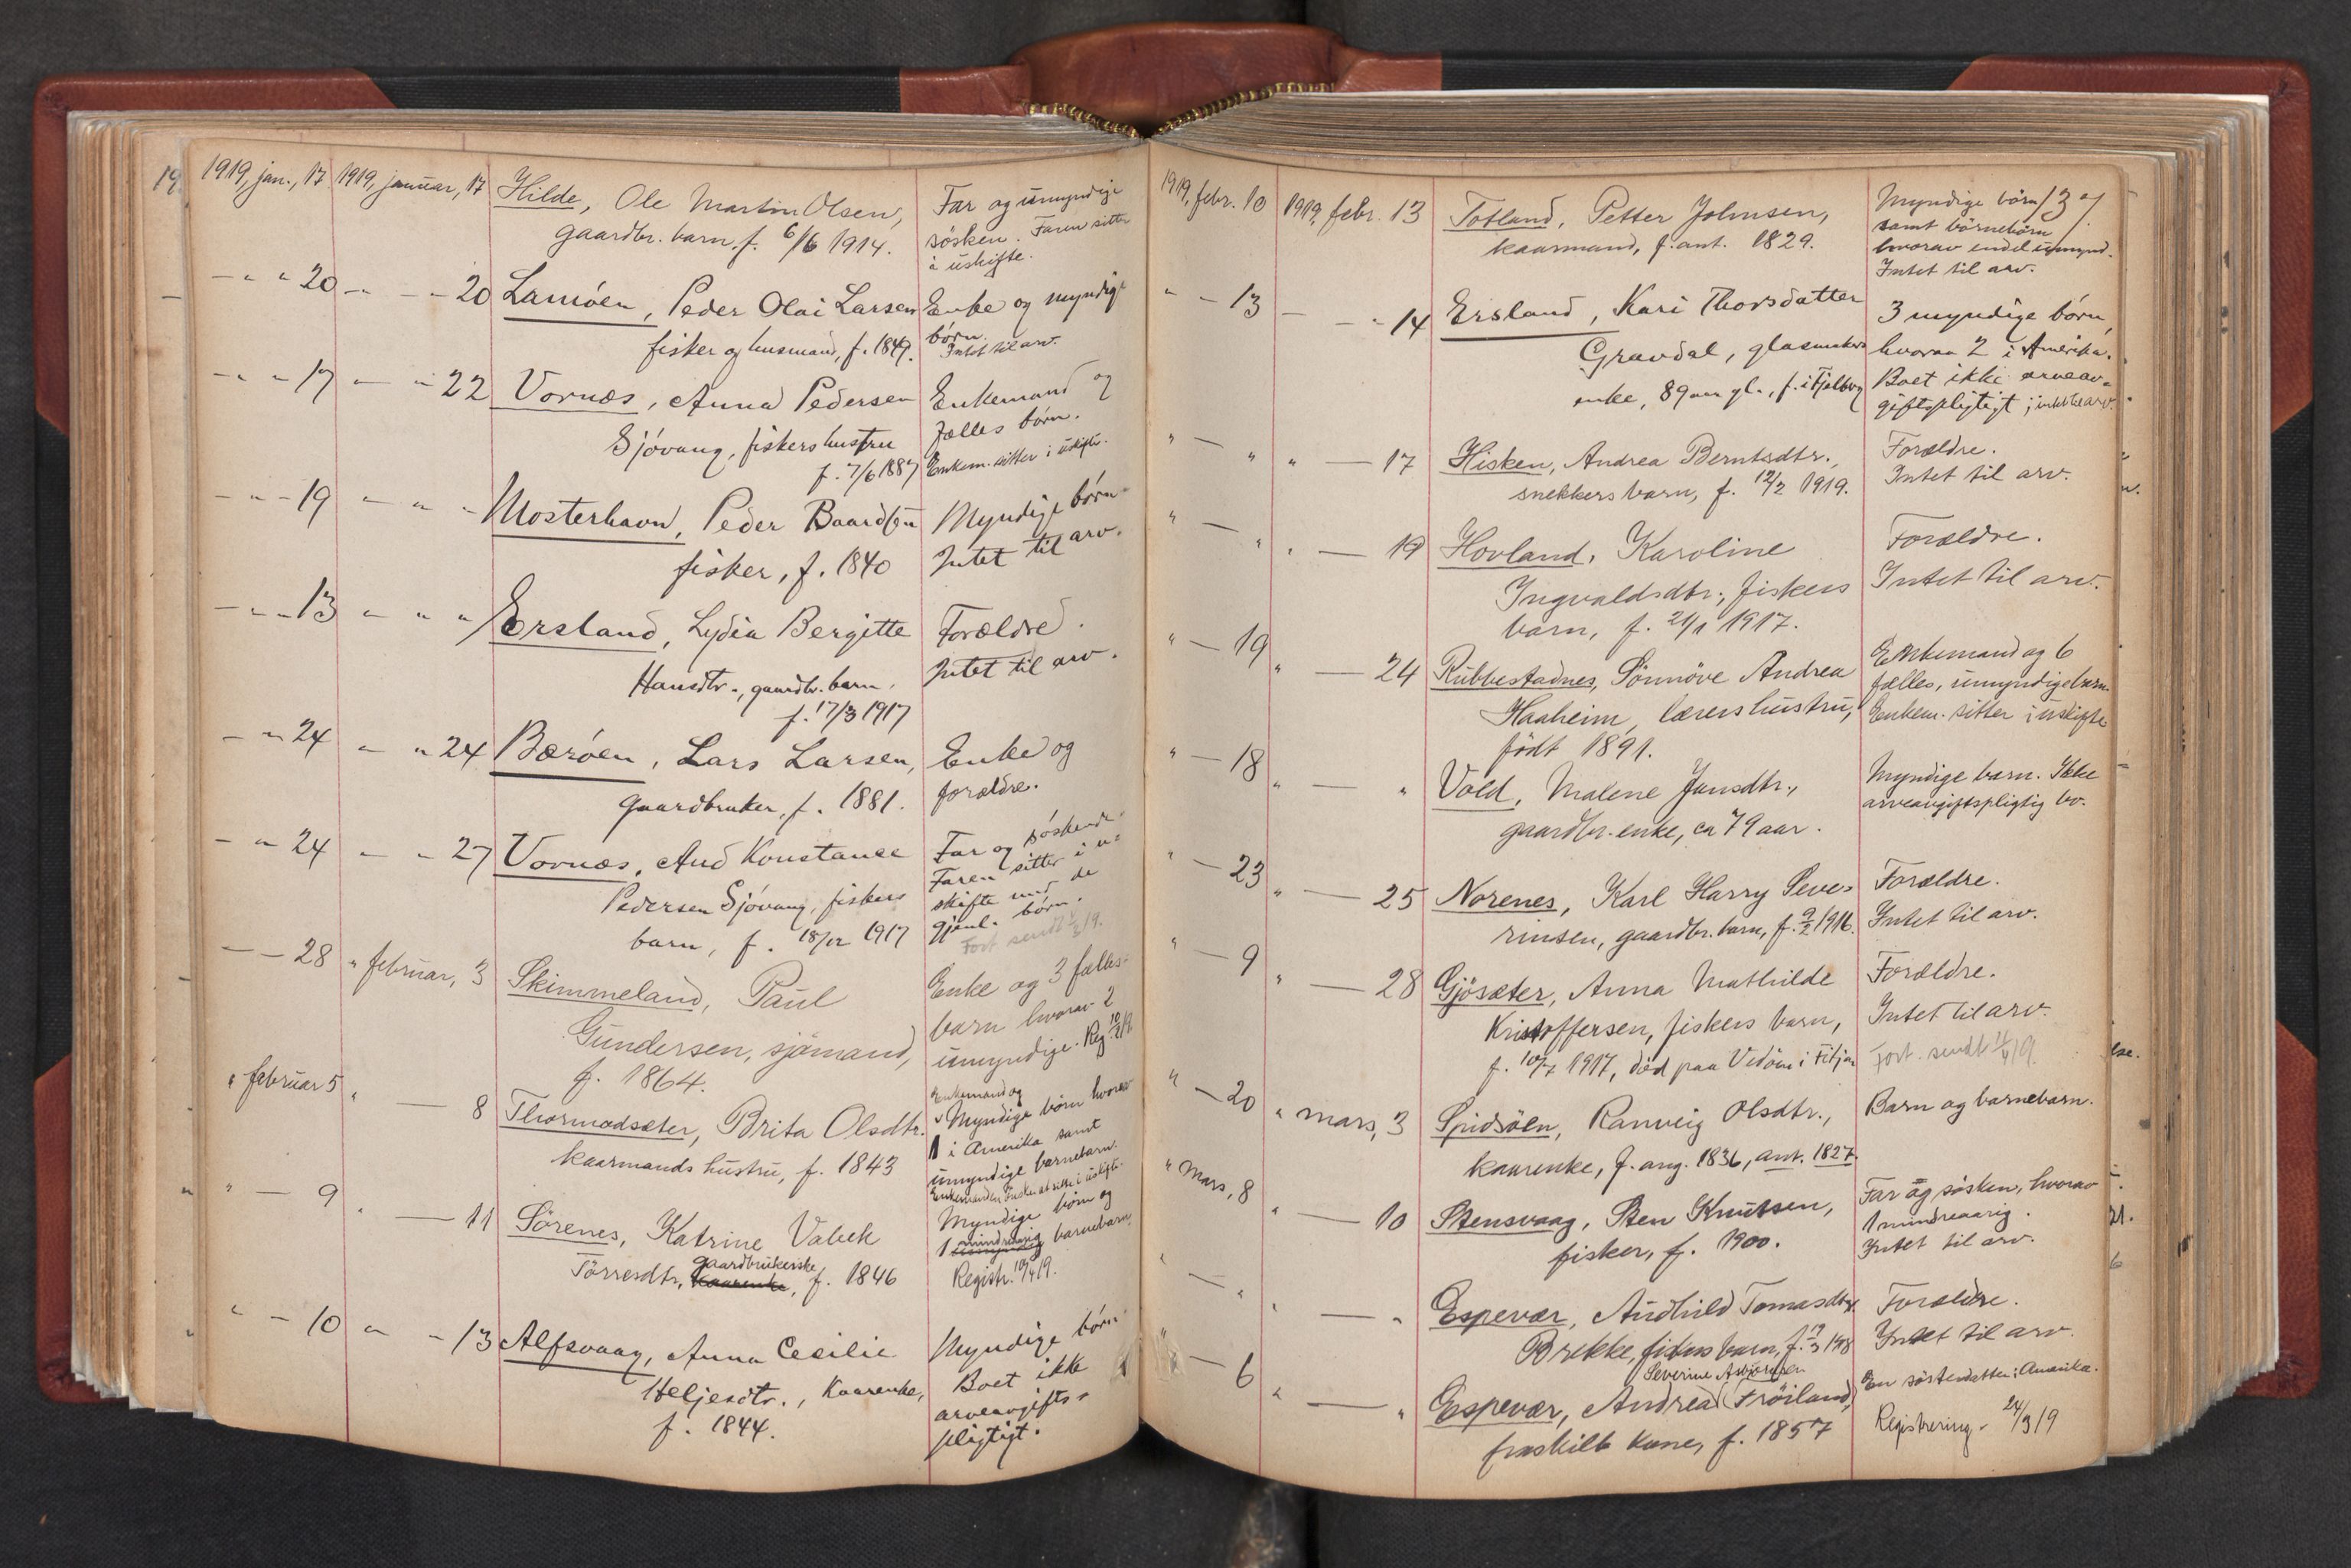 1919, jan., 17 1919, januar, 17 Hilde, Ole Martin Olsen, Far og umyndige
gaardbr. barn f. 6/6 1914. søsken. Faren sitter
i uskifte.
— " " 20 — " — " 20 Lamøen, Peder Olai Larsen Enke og myndige
fisker og husmand, f. 1849. børn.
Intet til arv.
— " " 17 — " 22 Vornæs, Anna Pedersen Enkemand og
Sjøvang, fiskers hustru fælles børn.
f. 7/6 1887 Enkem. sitter i uskifte.
— " — 19 — " " Mosterhavn, Peder Baardsen Myndige børn
fisker, f. 1840 Intet til arv.
— " — 13 " " " Ersland, Lydia Bergitte Forældre.
Hansdtr., gaardbr. barn, Intet til arv.
f. 17/3 1917
— " 24 — " 24 Børøen, Lars Larsen, Enke og
gaardbruker, f. 1881. forældre.
— " 24 — " 27 Vornæs, Aud Konstanse Far og søskende.
Pedersen Sjøvang, fiskers Faren sitter i u-
barn, f. 18/12 1917 skifte med de
gjenl. børn.
Fort sendt
— — 28 " februar, 3 Skimmeland, Paul Enke og 3 fælles-
Gundersen, sjømand, barn hvorav 2
f. 1864. umyndige. Reg. 10/2 19
" februar 5 " — 8 Thormodsæter, Brita Olsdtr. Enkemand og
kaarmands hustru, f. 1843 Myndige børn hvorav
1 i Amerika samt
umyndige barnebarn.
Enkemanden ønsker at sitte i uskifte.
" — 9 " — 11 Sørenes, Katrine Valich Myndige børn og
Tørresdtr, gaardbrukerske 1 mindreaarig barnebarn.
kaarenke, f. 1846 Registr. 10/4 19.
" — 10 " — 13 Alfsvaag, Anna Cecilie Myndige børn
Heljesdtr., Kaarenke, Boet ikke
f. 1844. arveavgifts-
pligtigt.
1919, febr. 10 1919, febr. 13 Totland, Petter Johnsen, Myndige børn
kaarmand, f. ant. 1829. samt børnebørn
hvorav endel umynd.
Intet til arv.
" — 13 — — " 14 Ersland, Kari Thorsdatter 3 myndige børn,
Gravdal, hvorav 2 i Amerika.
enke, 89 aar gl., f. i Fjelberg Boet ikke arveav-
giftspligtigt; intet til arv.
" — " " — 17 Hisken, Andrea Berntsdtr., Forældre.
snekkers barn, f. 12/2 1919. Intet til arv.
" — " " — 19 Hovland, Karoline Forældre.
Ingvaldsdtr., fiskers Intet til arv.
barn, f. 21/1 1917.
" — 19 " — 24 Rubbestadnes, Sønnøve Andrea Enkemand og 6
Haaheim, lærers hustru, fælles, umyndige barn.
født 1891. Enkem. sitter i uskifte
" — 18 " — " Vold, Malene Jansdtr., Myndige barn. Ikke
gaardbr. enke, ca 79 aar. arveavgiftspligtig bo.
" — 23 " — 25 Norenes, Karl Harry Seve- Forældre.
rinsen, gaardbr. barn, f. 9/2 1916. Intet til arv.
" — 9 " — 28 Gjøsæter, Anna Mathilde Forældre.
Kristoffersen, fiskers barn, Intet til arv.
f. 10/7 1917, død paa Vedøen i Fitjar Fort. sendt
" — 20 " mars, 3 Spidsøen, Ranveig Olsdtr., Barn og barnebarn.
kaarenke, f. ang. 1836, ant. 1827.
" Mars, 8 " — 10 Stensvaag, Sten Knutsen, Far og søsken, hvorav
fisker, f. 1900. 1 mindreaarig.
Intet til arv.
" — " " — " Espevær, Audhild Tomasdtr. Forældre.
Brekke, fiskers barn, f. Intet til arv.
" — 6 " — " Severine Asbjørnsen
Espevær, Andrea (Frøiland), En søsterdatter i Amerika.
fraskilt kone, f. 1857 Registrering 24/3 19